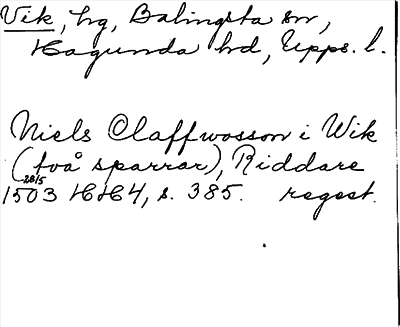 Vik, hg, Balingsta sn,
Hagunda hd, Upps. l.
Niels Claffwosson i Wik
(två sparrar), Riddare
28/5
1503 HH4, s. 385. regest.